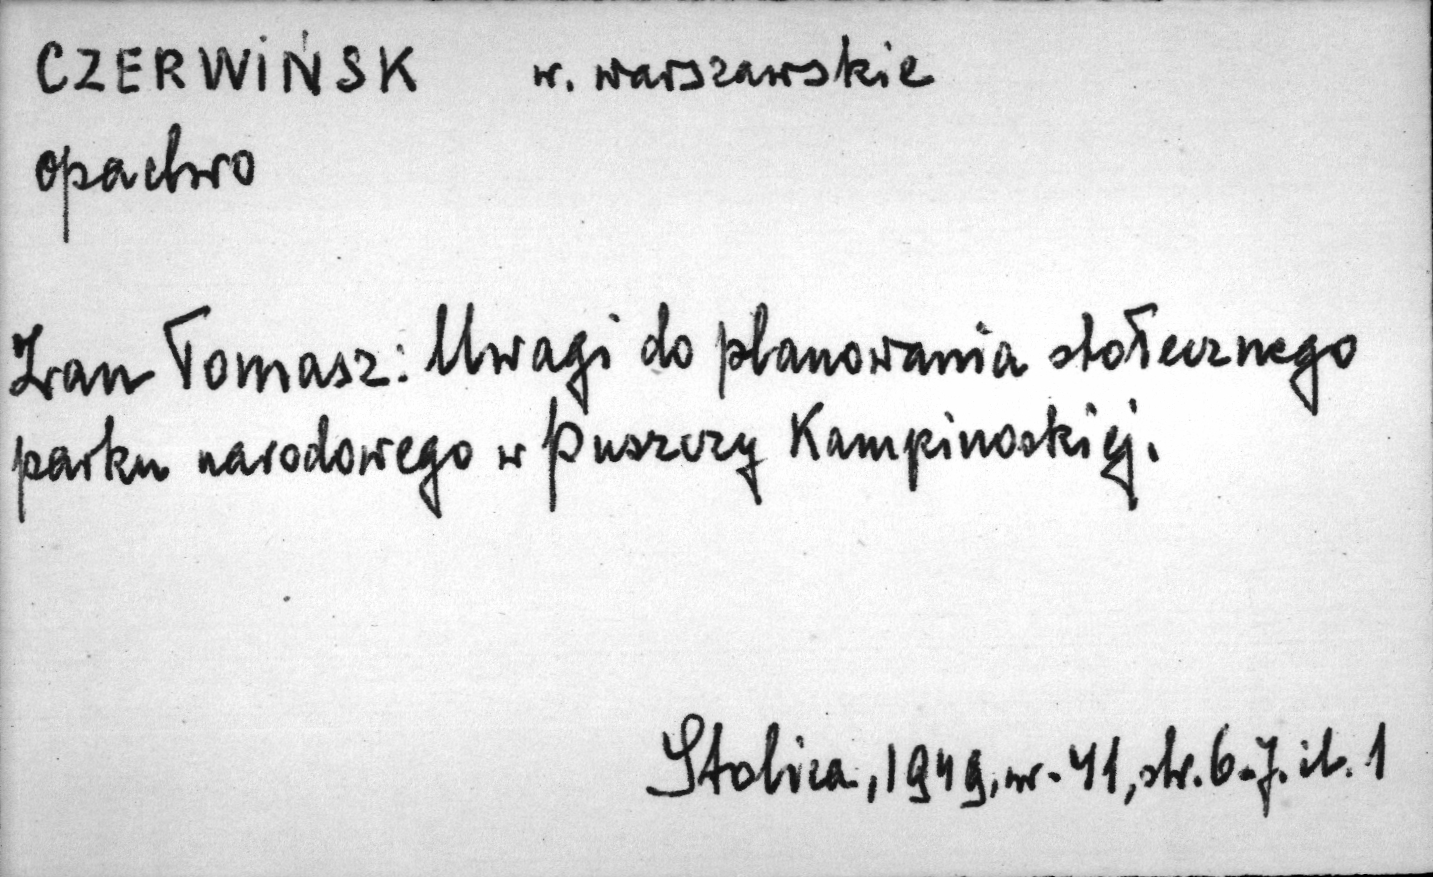 CZERWIŃSK w. warszawskie
opactwo
Iwan Tomasz: Uwagi do planowania stołecznego
parku narodowego w Puszczy Kampinoskiej.
Stolica, 1949, nr. 41, str. 6-7. il. 1